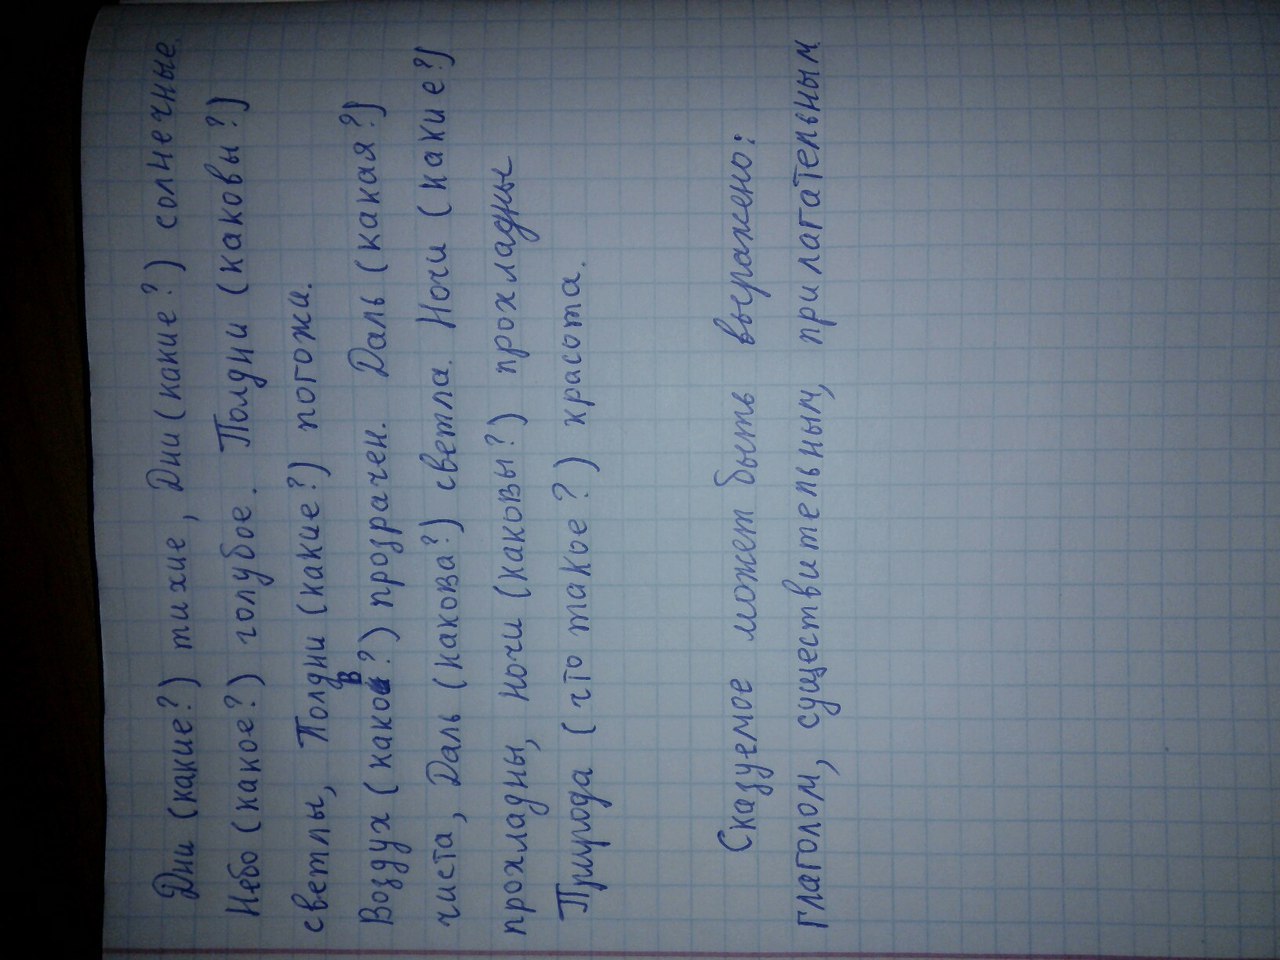 Дни (какие?) тихие, Дни (какие?) солнечные.
Небо (какое?) голубое. Полдни (каковы?)
светлы, Полдни (какие?) погожи.
Воздух (каков?) прозрачен. Даль (какая?)
чиста, Даль (какова?) светла. Ночи (какие?)
прохладны, Ночи (каковы?) прохладны
Природа (что такое?) красота.
Сказуемое может быть выражено:
глаголом, существительным, прилагательным